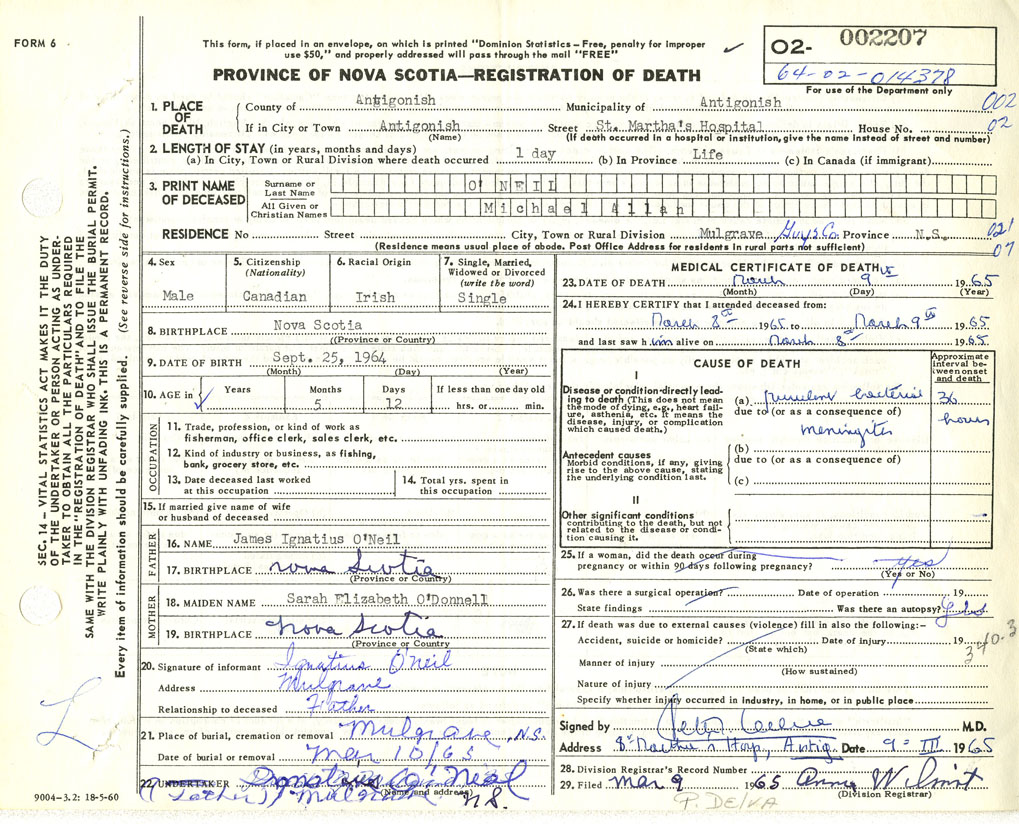 FORM 6
This form, if placed in an envelope, on which is printed "Dominion Statistics – Free, penalty for improper
use $50," and properly addressed will pass through the mail "FREE"
PROVINCE OF NOVA SCOTIA—REGISTRATION OF DEATH
O2- 002207
64-02-014378
For use of the Department only
1. PLACE OF DEATH
County of Antigonish Municipality of Antigonish 002
If in City or Town Antigonish Street St. Martha's Hospital House No. 02
(Name) (If death occurred in a hospital or institution, give the name instead of street and number)
2. LENGTH OF STAY (in years, months and days)
(a) In City, Town or Rural Division where death occurred 1 day (b) In Province Life (c) In Canada (if immigrant)
3. PRINT NAME OF DECEASED
Surname or Last Name O'NEIL
All Given or Christian Names Michael Allan
RESIDENCE No Street City, Town or Rural Division Mulgrave Guys Co Province N.S. 021
(Residence means usual place of abode. Post Office Address for residents in rural parts not sufficient) 07
4. Sex
Male
5. Citizenship
(Nationality)
Canadian
6. Racial Origin
Irish
7. Single, Married,
Widowed or Divorced
(write the word)
Single
8. BIRTHPLACE Nova Scotia
((Province or Country)
9. DATE OF BIRTH Sept. 25, 1964
(Month) (Day) (Year)
10. AGE in
Years Months Days If less than one day old
5 12 hrs. or min.
OCCUPATION
11. Trade, profession, or kind of work as
fisherman, office clerk, sales clerk, etc.
12. Kind of industry or business, as fishing,
bank, grocery store, etc.
13. Date deceased last worked
at this occupation
14. Total yrs. spent in
this occupation
15. If married give name of wife
or husband of deceased
FATHER
16. NAME James Ignatius O'Neil
17. BIRTHPLACE Nova Scotia
(Province or Country)
MOTHER
18. MAIDEN NAME Sarah Elizabeth O'Donnell
19. BIRTHPLACE Nova Scotia
(Province or Country)
20. Signature of informant Ignatius O'Neil
Address Mulgrave
Relationship to deceased Father
21. Place of burial, cremation or removal Mulgrave, N.S.
Date of burial or removal Mar 10/65
22. UNDERTAKER Ignatius O'Neal
(Name and address)
(Father) Mulgrave N.S.
MEDICAL CERTIFICATE OF DEATH
23. DATE OF DEATH March 9th 1965
(Month) (Day) (Year)
24. I HEREBY CERTIFY that I attended deceased from:
March 8th 1965 to March 9th 1965
and last saw him alive on March 8th 1965
CAUSE OF DEATH
Approximate
interval be-
tween onset
and death
I
Disease or condition directly lead-
ing to death (This does not mean
the mode of dying, e.g., heart fail-
ure, asthenia, etc. It means the
disease, injury, or complication
which caused death.)
(a) purulent bacterial 36
due to (or as a consequence of) hours
meningitis
Antecedent causes
Morbid conditions, if any, giving
rise to the above cause, stating
the underlying condition last.
(b)
due to (or as a consequence of)
(c)
II
Other significant conditions
contributing to the death, but not
related to the disease or condi-
tion causing it.
25. If a woman, did the death occur during
pregnancy or within 90 days following pregnancy? yes
(Yes or No)
26. Was there a surgical operation? Date of operation 19
State findings Was there an autopsy?
27. If death was due to external causes (violence) fill in also the following:–
Accident, suicide or homicide? Date of injury 19
(State which) 340.3
Manner of injury
(How sustained)
Nature of injury
Specify whether injury occurred in Industry, in home, or in public place
Signed by M.D.
Address St Martha's Hosp, Antig. Date 9-III 1965
28. Division Registrar's Record Number
29. Filed Mar 9 1965
(Division Registrar)
P. DELVA
SEC. 14 – VITAL STATISTICS ACT MAKES IT THE DUTY
OF THE UNDERTAKER OR PERSON ACTING AS UNDER-
TAKER TO OBTAIN ALL THE PARTICULARS REQUIRED
IN THE "REGISTRATION OF DEATH" AND TO FILE THE
SAME WITH THE DIVISION REGISTRAR WHO SHALL ISSUE THE BURIAL PERMIT.
WRITE PLAINLY WITH UNFADING INK. THIS IS A PERMANENT RECORD.
Every item of information should be carefully supplied. (See reverse side for instructions.)
L
9004-3.2: 18-5-60